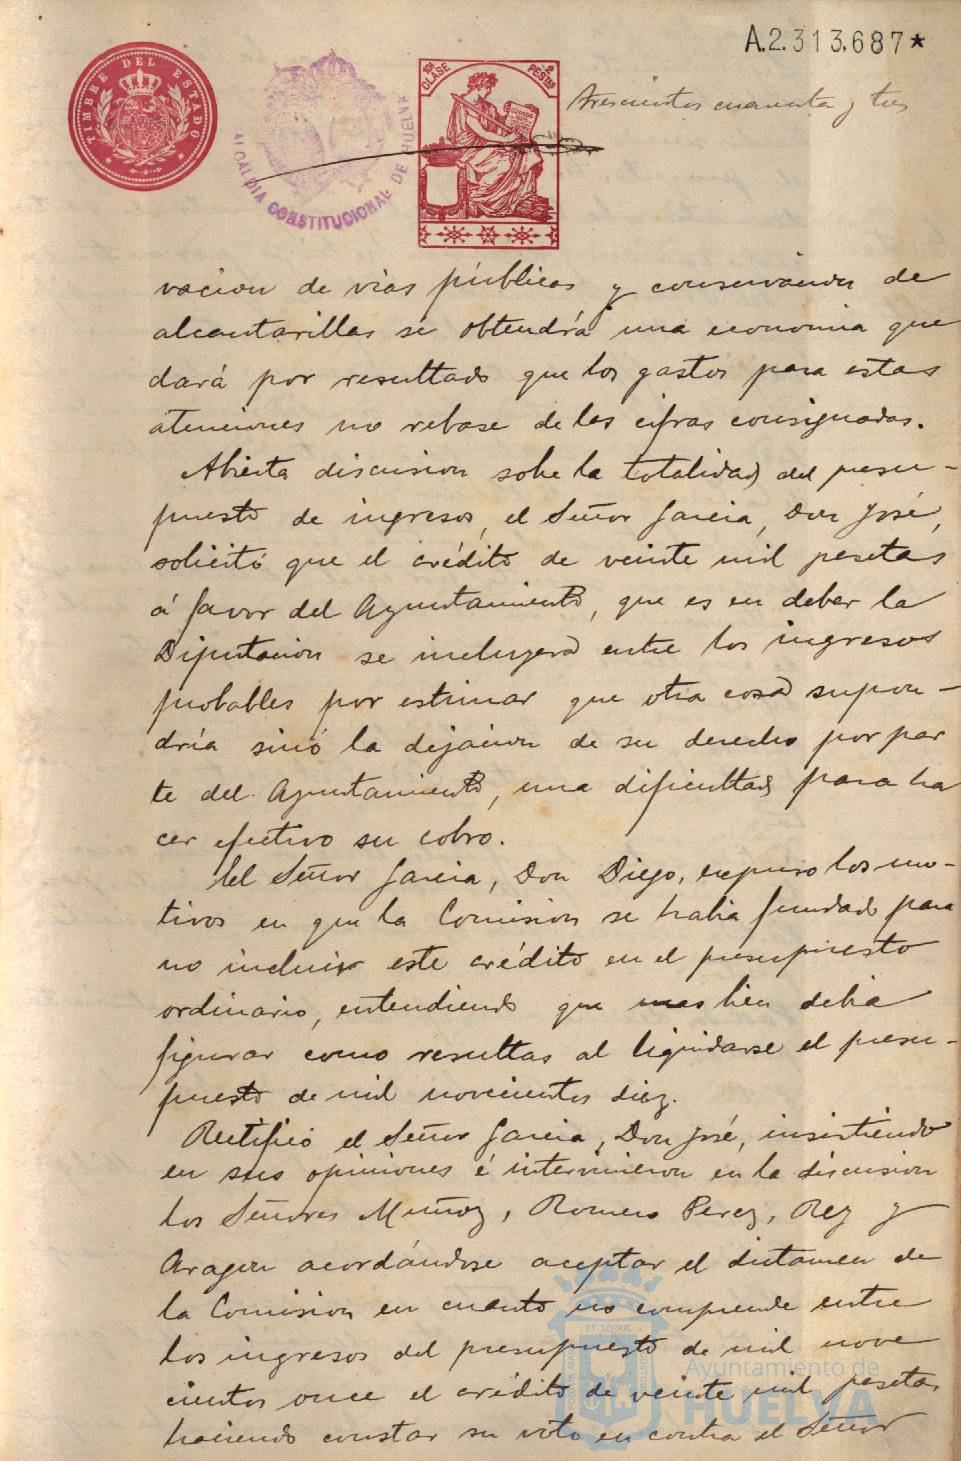 A.2.313.687*
TIMBRE DEL ESTADO
ALCALDIA CONSTITUCIONAL DE HUELVA
10ª CLASE
2 PESETAS
trescientos cuarenta y tres
vacion de vias públicas y conservacion de
alcantarillas se obtendrá una economia que
dará por resultado que los gastos para estas
atenciones no rebase de las cifras consignadas.
Abierta discusion sobre la totalidad del presu-
puesto de ingresos, el Señor Garcia, Don José,
solicitó que el crédito de veinte mil pesetas
á favor del Ayuntamiento, que es en deber la
Diputacion se incluyera entre los ingresos
probables por estimar que otra cosa supon-
dría sinó la dejacion de su derecho por par
te del Ayuntamiento, una dificultad para ha
cer efectivo su cobro.
El Señor Garcia, Don Diego, expuso los mo-
tivos en que la Comision se habia fundado para
no incluir este crédito en el presupuesto
ordinario, entendiendo que mas bien debia
figurar como resultas al liquidarse el presu-
puesto de mil novecientos diez.
Rectificó el Señor Garcia, Don José, insistiendo
en sus opiniones é intervinieron en la discusion
los Señores Muñoz, Romero Perez, Rey y
Aragon acordándose aceptar el dictamen de
la Comision en cuanto no comprende entre
los ingresos del presupuesto de mil nove
cientos once el crédito de veinte mil pesetas,
haciendo constar su voto en contra el Señor
Ayuntamiento de
HUELVA